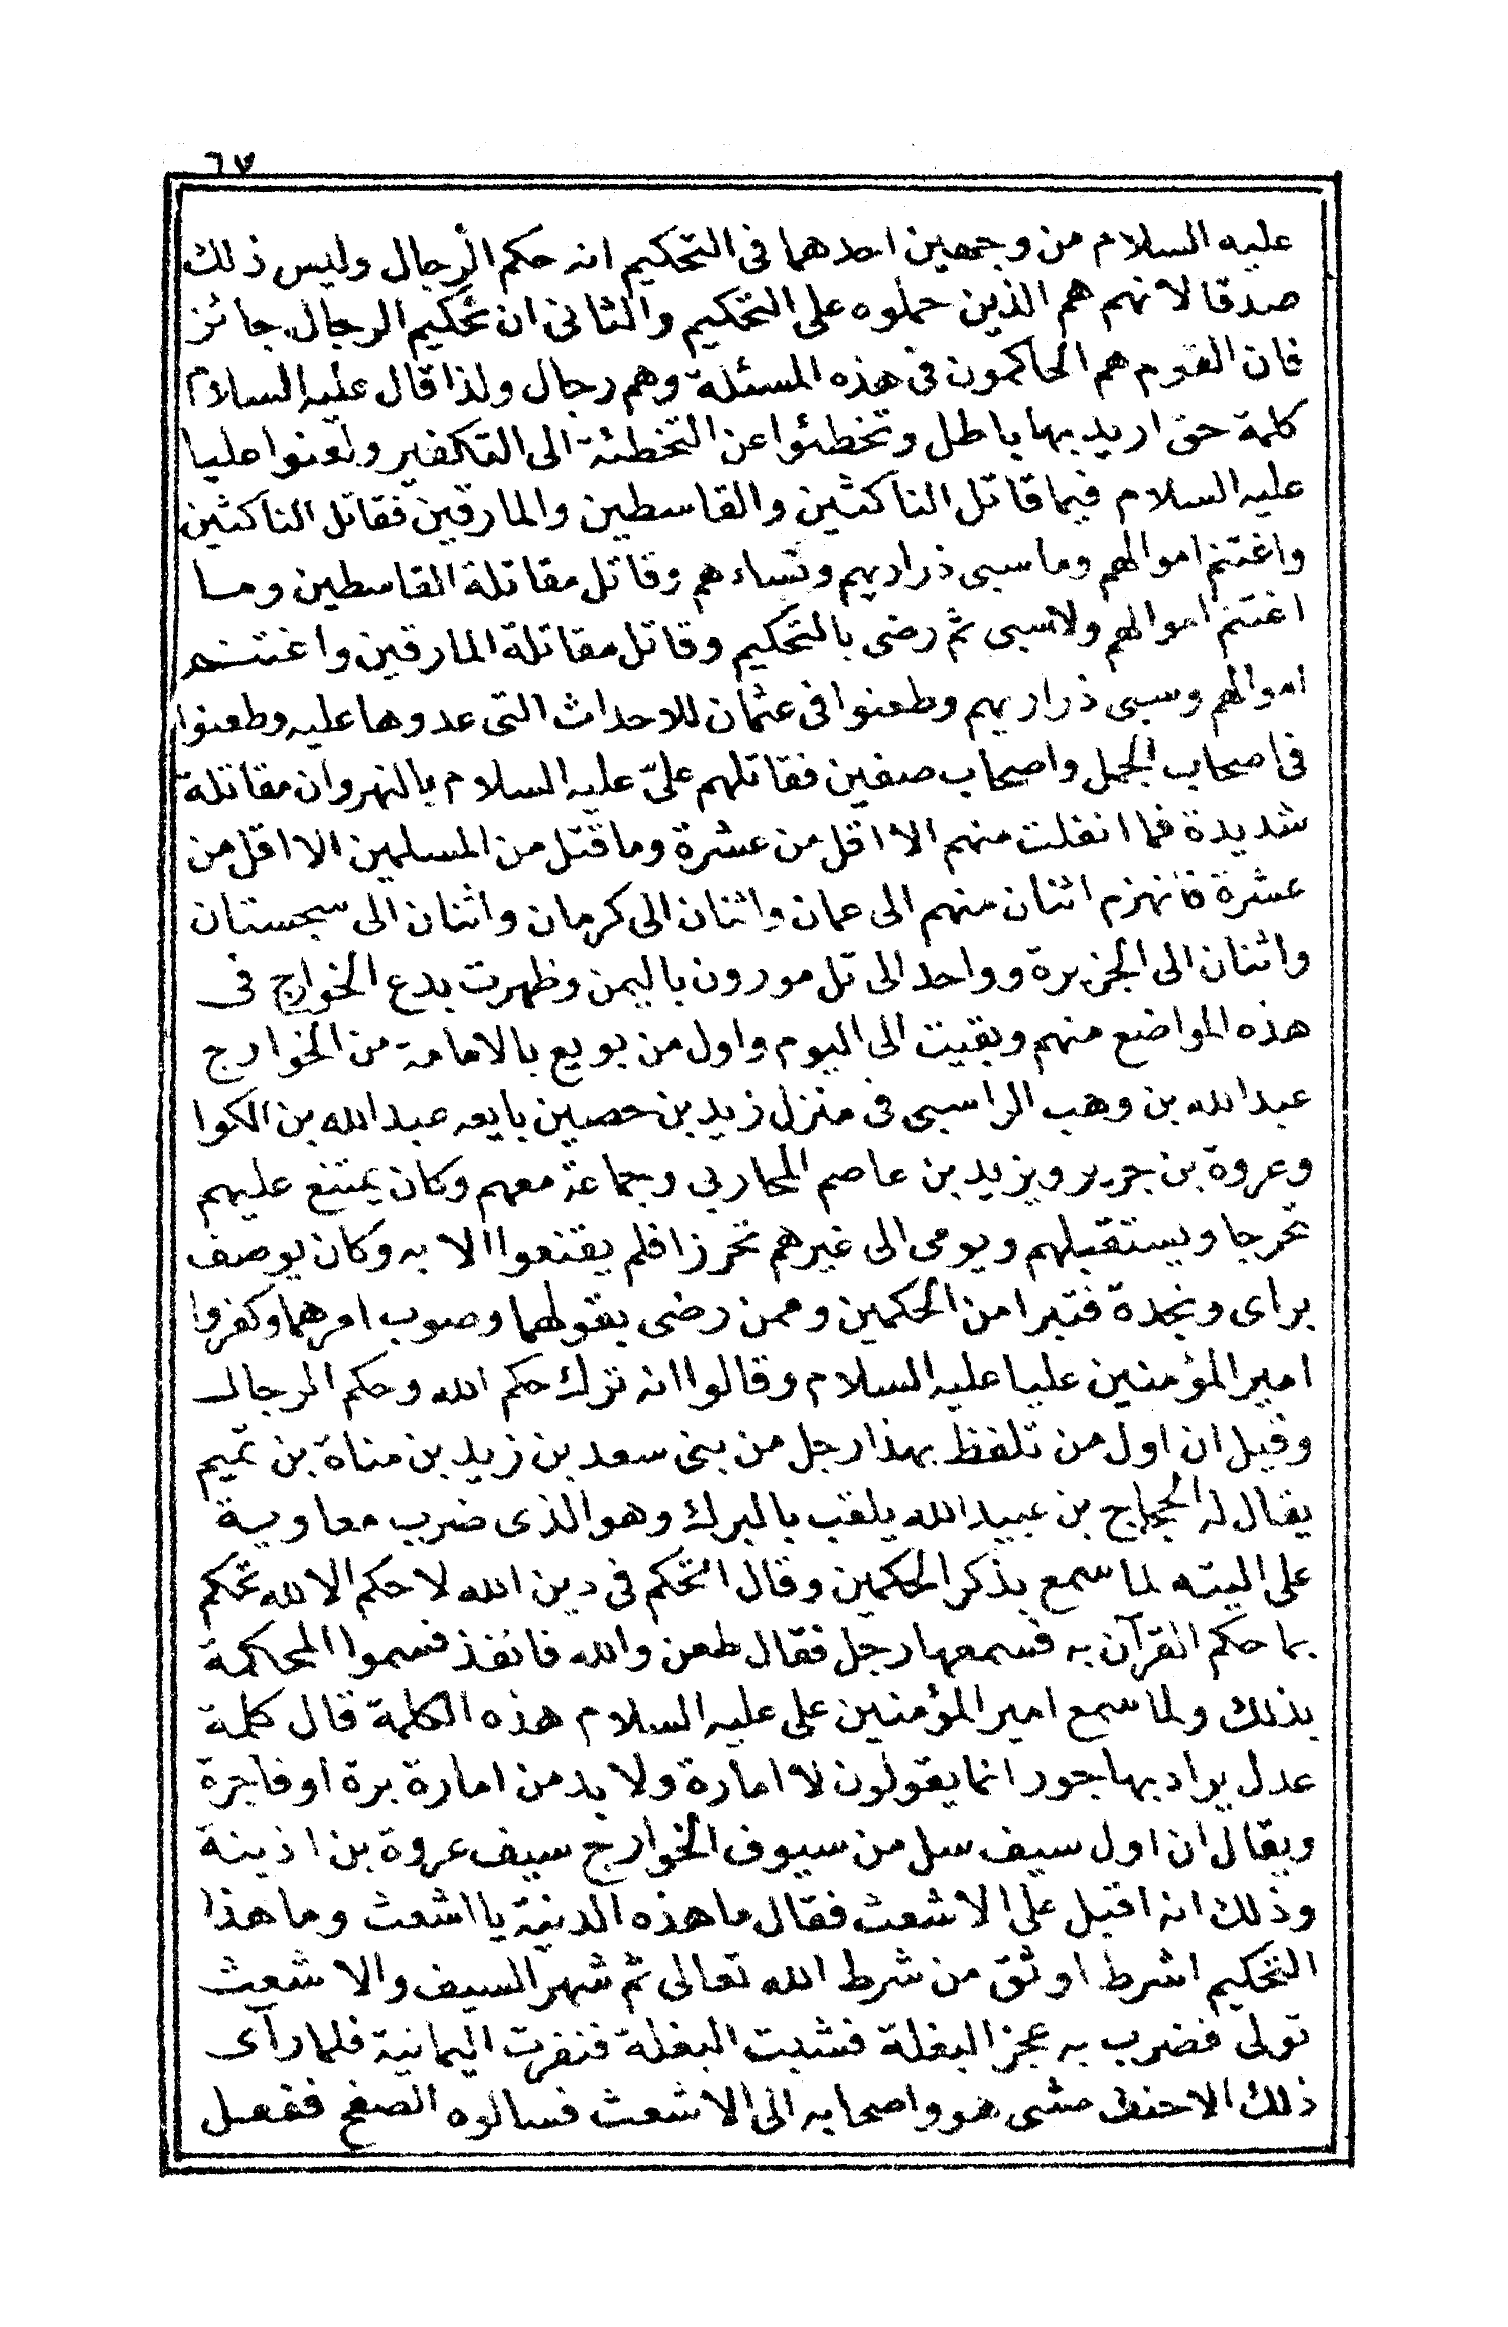 ٦٧
عليه السلام من وجهين احدهما فى التحكيم انه حكم الرجال وليس ذلك
صدقا لانهم هم الذين حملوه على التحكيم والثانى ان تحكيم الرجال جائز
فان القوم هم الحاكمون فى هذه المسئلة وهم رجال ولذا قال عليه السلام
كلمة حق اريد بها باطل وتخطئوا عن التخطئة الى التكفير ولعنوا عليا
عليه السلام فيما قاتل الناكثين والقاسطين والمارقين فقاتل الناكثين
واغتنم اموالهم وما سبى ذراريهم ونساءهم وقاتل مقاتلة القاسطين وما
اغتنم اموالهم ولا سبى ثم رضى بالتحكيم وقاتل مقاتلة المارقين واغتنم
اموالهم وسبى ذراريهم وطعنوا فى عثمان للاحداث التى عدوها عليه وطعنوا
فى اصحاب الجمل واصحاب صفين فقاتلهم علىّ عليه السلام بالنهروان مقاتلة
شديدة فما انفلت منهم الا اقل من عشرة وما قتل من المسلمين الا اقل من
عشرة فانهزم اثنان منهم الى عمان واثنان الى كرمان واثنان الى سجستان
واثنان الى الجزيرة وواحد الى تل مورون باليمن وظهرت بدع الخوارج فى
هذه المواضع منهم وبقيت الى اليوم واول من بويع بالامامة من الخوارج
عبد الله بن وهب الراسبى فى منزل زيد بن حصين بايعه عبد الله بن الكوا
وعروة بن جرير ويزيد بن عاصم المحاربي وجماعة معهم وكان يمتنع عليهم
تحرجا ويستقبلهم ويومى الى غيرهم تحرزا فلم يقنعوا الا به وكان يوصف
براى ونجدة فتبرا من الحكمين وممن رضى بقولهما وصوب امرهما وكفروا
امير المؤمنين عليا عليه السلام وقالوا انه ترك حكم الله وحكم الرجال
وقيل ان اول من تلفظ بهذا رجل من بنى سعد بن زيد بن مناة بن تميم
يقال له الحجاج بن عبيد الله يلقب بالبرك وهو الذى ضرب معاوية
على اليته لما سمع بذكر الحكمين وقال اتحكم فى دين الله لا حكم الا لله تحكم
بما حكم القرآن به فسمعها رجل فقال طعن والله فانفذ فسموا المحاكمة
بذلك ولما سمع امير المؤمنين على عليه السلام هذه الكلمة قال كلمة
عدل يراد بها جور انما يقولون لا امارة ولا بد من امارة برة او فاجرة
ويقال ان اول سيف سل من سيوف الخوارج سيف عروة بن اذينة
وذلك انه اقبل على الاشعث فقال ما هذه الدنية يا اشعث وما هذا
التحكيم اشرط اوثق من شرط الله تعالى ثم شهر السيف والاشعث
تولى فضرب به عجز البغلة فشبت البغلة فنفرت اليمانية فلما رآى
ذلك الاحنف مشى هو واصحابه الى الاشعث فسالوه الصفح ففعل